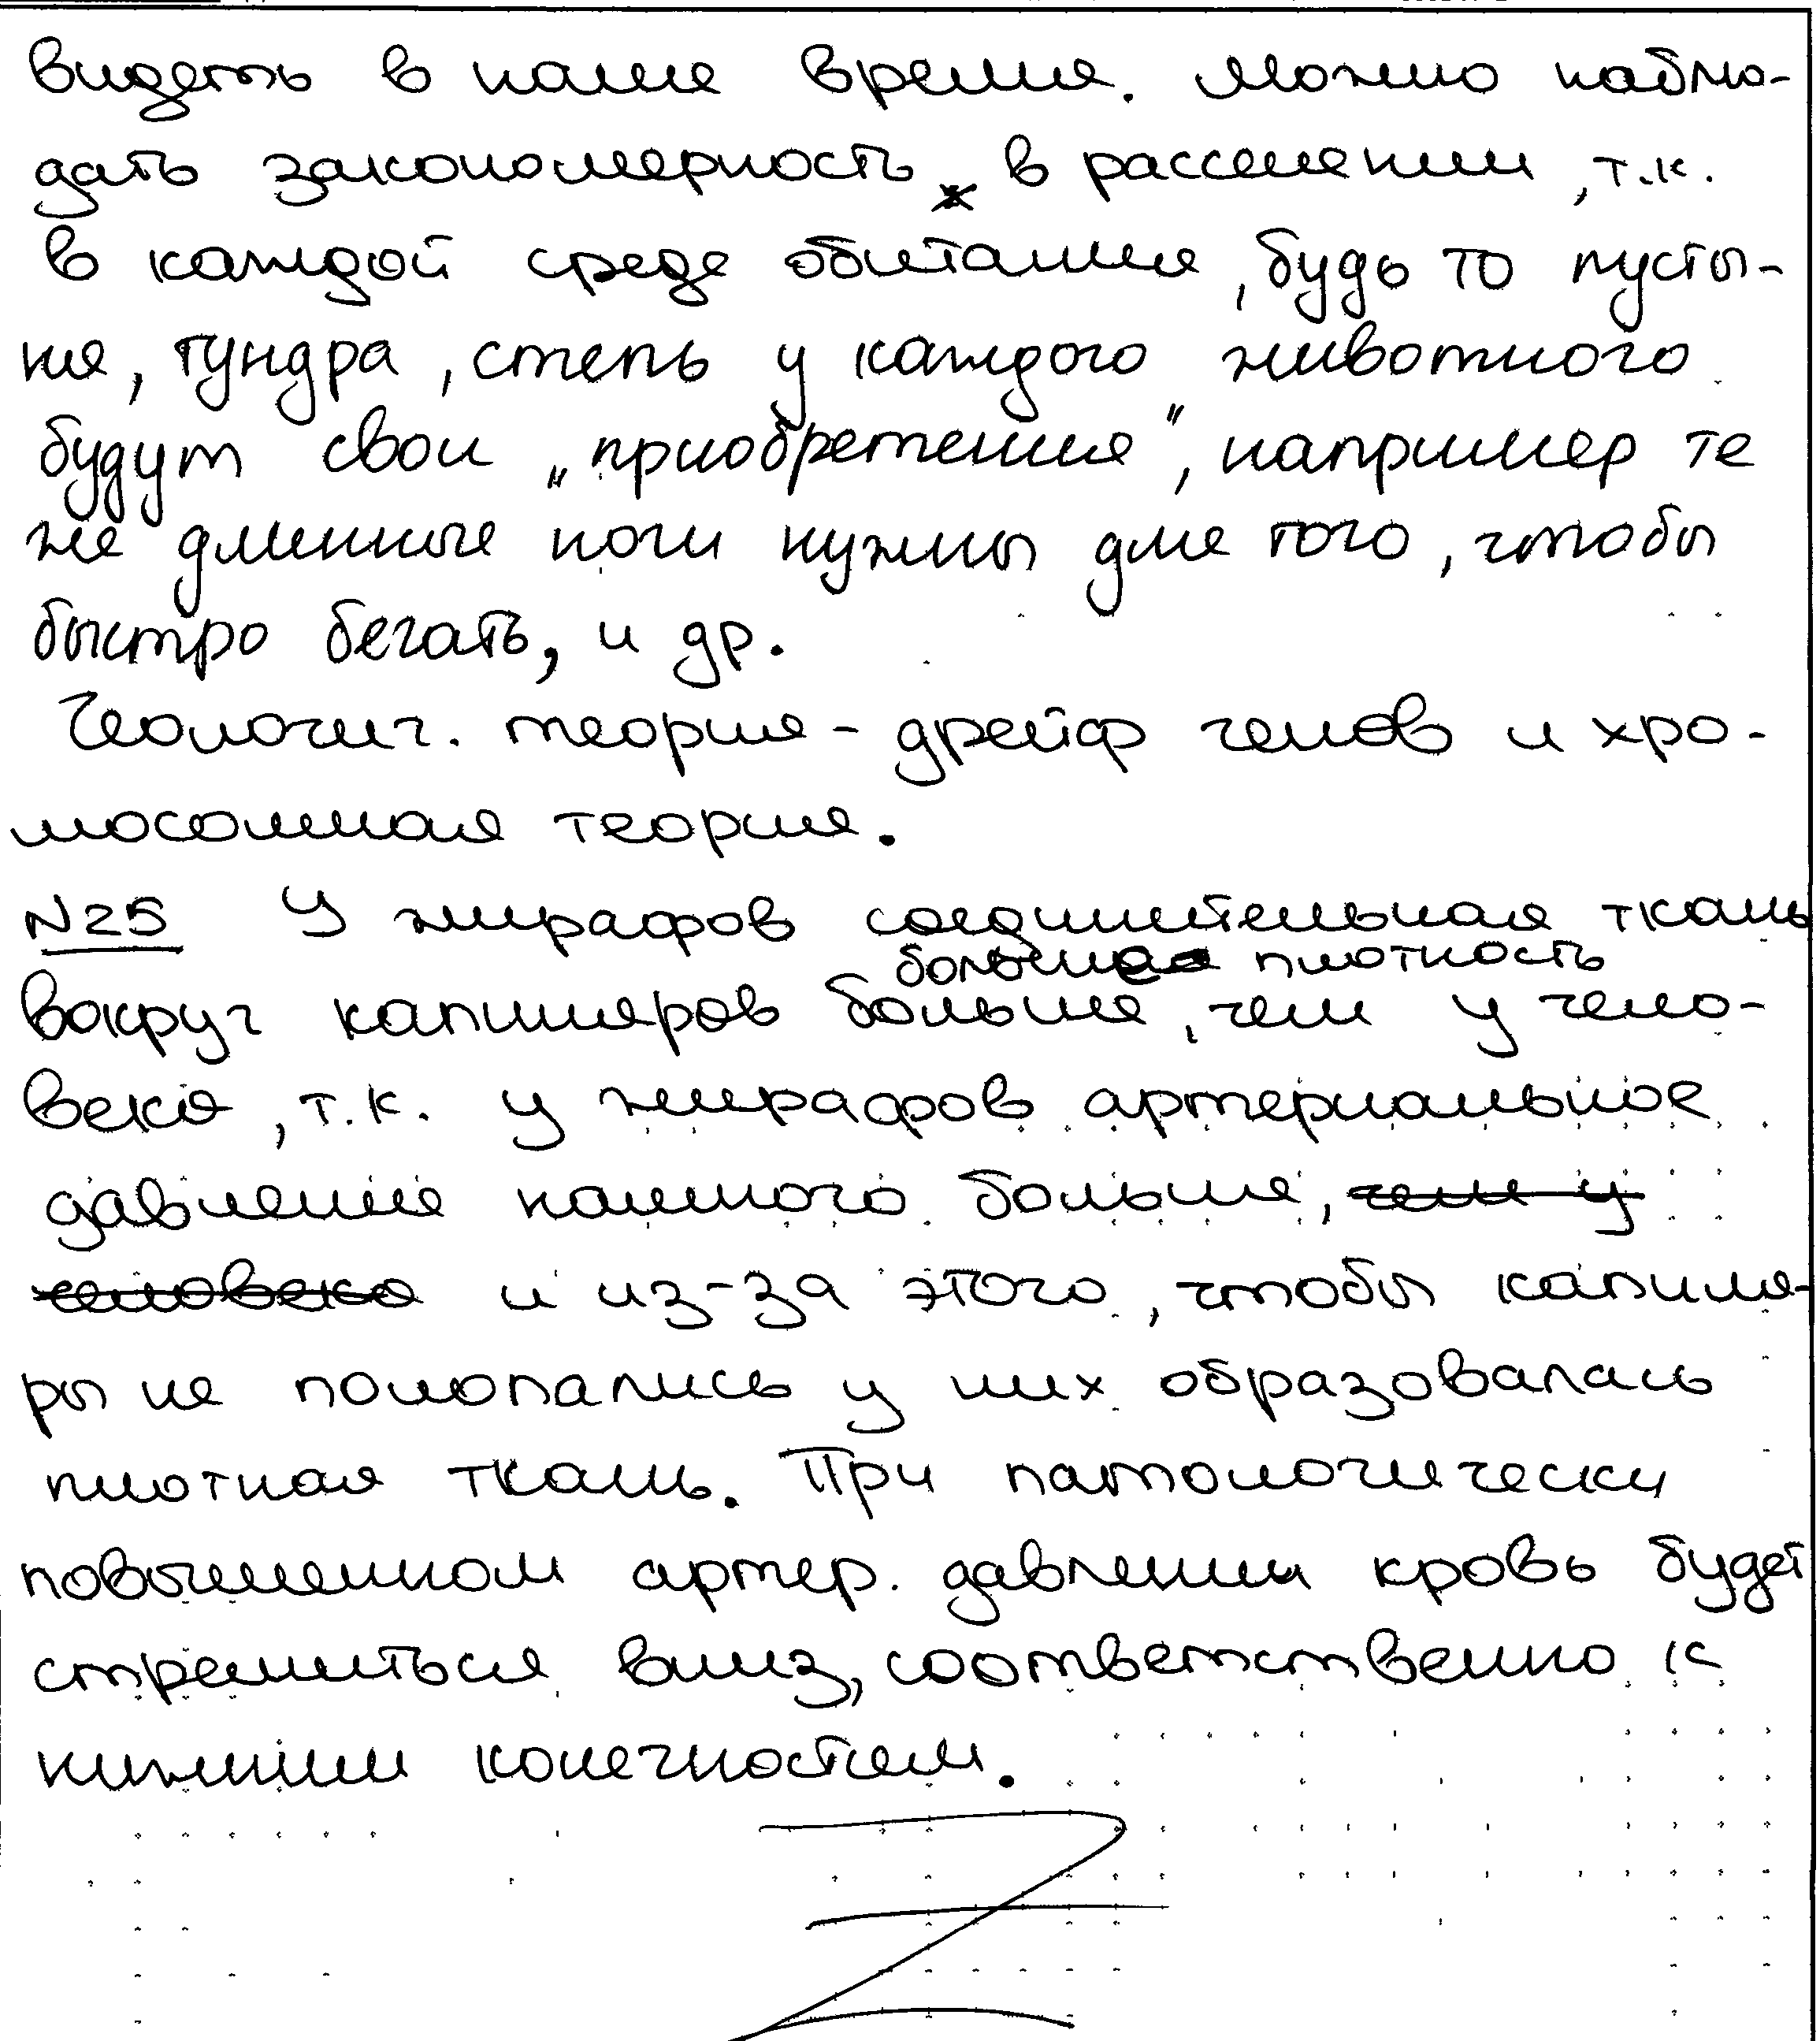 видеть в наше время. Можно наблю-
дать закономерность в расселении, т.к.
в каждой среде обитания, будь то пусты-
ня, тундра, степь у каждого животного
будут свои „приобретения", например те
же длинные ноги нужны для того, чтобы
быстро бегать, и др.
Геологич. теория - дрейф генов и хро-
мосомная теория.
N25 У жирафов соединительная ткань
большая плотность
вокруг капилляров больше, чем у чело-
века, т.к. у жирафов артериальное
давление намного больше, чем у
человека и из-за этого, чтобы капиля-
ры не полопались у них образовалась
плотная ткань. При патологически
повышенном артер. давлении кровь будет
стремиться вниз, соответственно к
нижним конечностям.